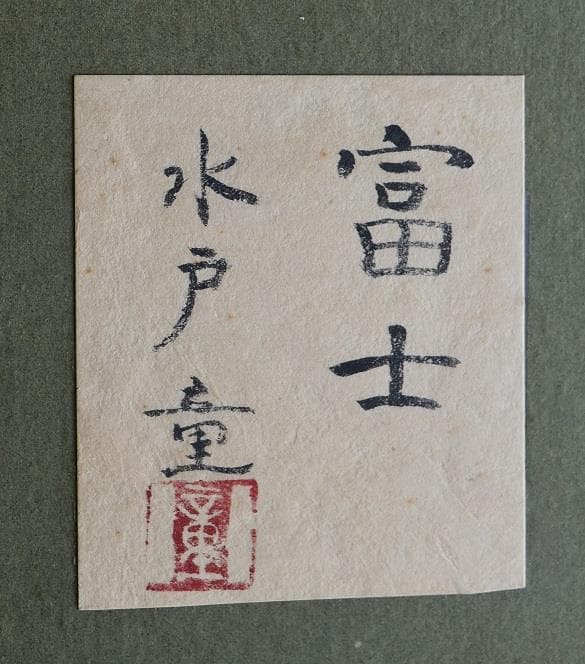 富士
水戸童
童